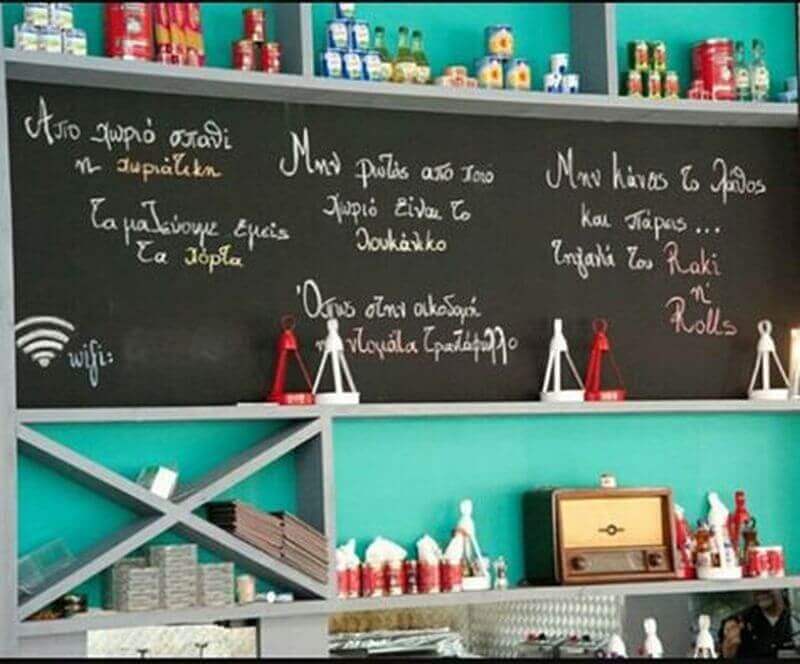 Απο χωριό σπαθί
η χωριάτικη
Τα μαζεύουμε εμείς
Τα χόρτα
Μην ρωτάς από ποιο
χωριό είναι το
λουκάνικο
Όπως στην οικοδομή
η ντομάτα τριαντάφυλλο
Μην κάνεις το λάθος
και πάρεις...
τηγανιά του Raki
n'
Rolls
wifi: